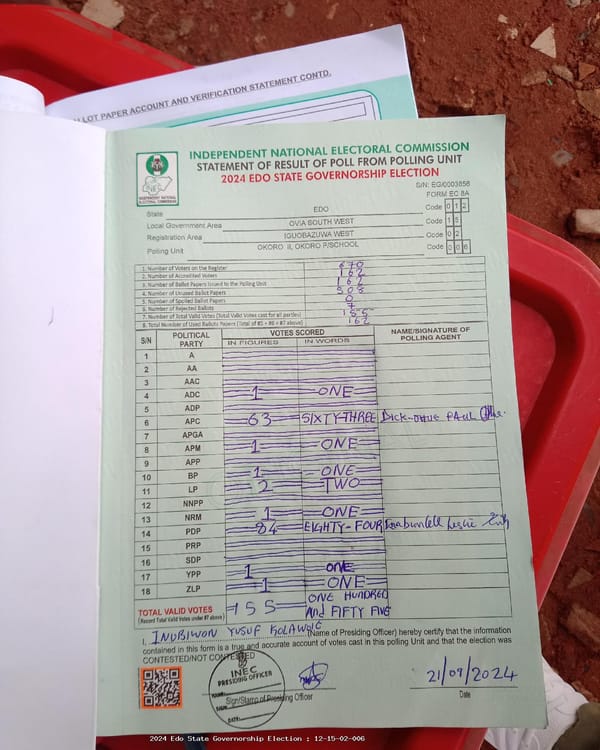 BALLOT PAPER ACCOUNT AND VERIFICATION STATEMENT CONTD.
INDEPENDENT NATIONAL ELECTORAL COMMISSION
STATEMENT OF RESULT OF POLL FROM POLLING UNIT
2024 EDO STATE GOVERNORSHIP ELECTION
S/N: EG/0003856
FORM EC 8A
INEC
INDEPENDENT NATIONAL ELECTORAL COMMISSION
State EDO Code 0 1 2
Local Government Area OVIA SOUTH WEST Code 1 5
Registration Area IGUOBAZUWA WEST Code 0 2
Polling Unit OKORO II, OKORO P/SCHOOL Code 0 0 6
1. Number of Voters on the Register 670
2. Number of Accredited Voters 162
3. Number of Ballot Papers Issued to the Polling Unit 162
4. Number of Unused Ballot Papers 508
5. Number of Spoiled Ballot Papers 0
6. Number of Rejected Ballots 7
7. Number of Total Valid Votes (Total Valid Votes cast for all parties) 155
8. Total Number of Used Ballots Papers (Total of #5 + #6 + #7 above) 162
S/N POLITICAL PARTY VOTES SCORED NAME/SIGNATURE OF POLLING AGENT
IN FIGURES IN WORDS
1 A
2 AA
3 AAC
4 ADC 1 ONE
5 ADP
6 APC 63 SIXTY-THREE PAUL
7 APGA
8 APM 1 ONE
9 APP
10 BP 1 ONE
11 LP 2 TWO
12 NNPP
13 NRM 1 ONE
14 PDP 84 EIGHTY-FOUR Leslie
15 PRP
16 SDP
17 YPP 1 ONE
18 ZLP 1 ONE
TOTAL VALID VOTES 155 ONE HUNDRED And FIFTY FIVE
(Record Total Valid Votes under #7 above)
I, INUBIWON YUSUF KOLAWOLE (Name of Presiding Officer) hereby certify that the information
contained in this form is a true and accurate account of votes cast in this polling Unit and that the election was
CONTESTED/NOT CONTESTED
INEC
PRESIDING OFFICER
NAME:
SIGN:
DATE:
Sign/Stamp of Presiding Officer
21/09/2024
Date
2024 Edo State Governorship Election : 12-15-02-006